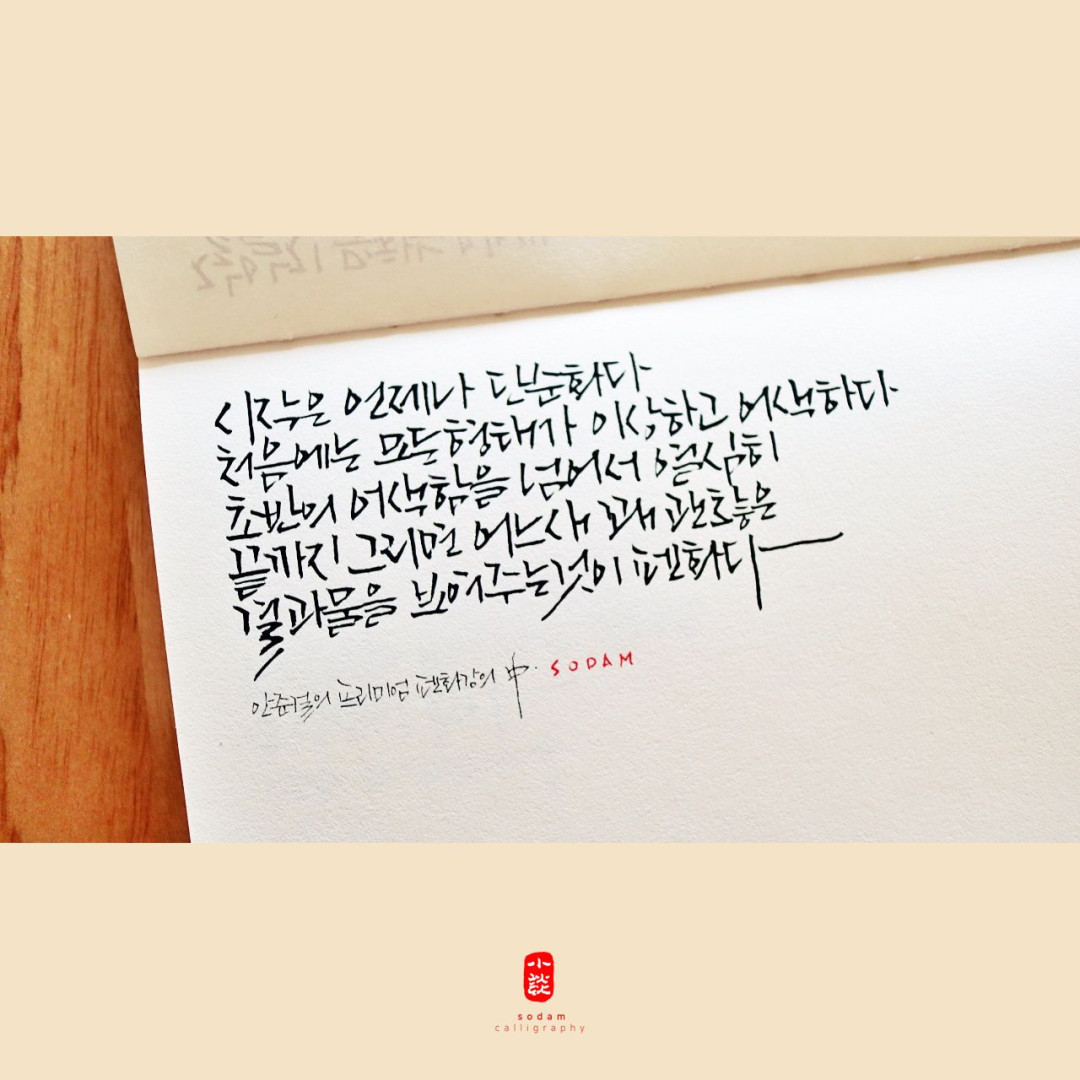 시작은 언제나 단순화다
처음에는 모든형태가 이상하고 어색하다
초반의 어색함을 넘어서 열심히
끝까지 그리면 어느새 꽤
결과물을 보여주는것이 펜화다
안준걸의 프리미엄 펜화강의 中. SODAM
小談
sodam
calligraphy